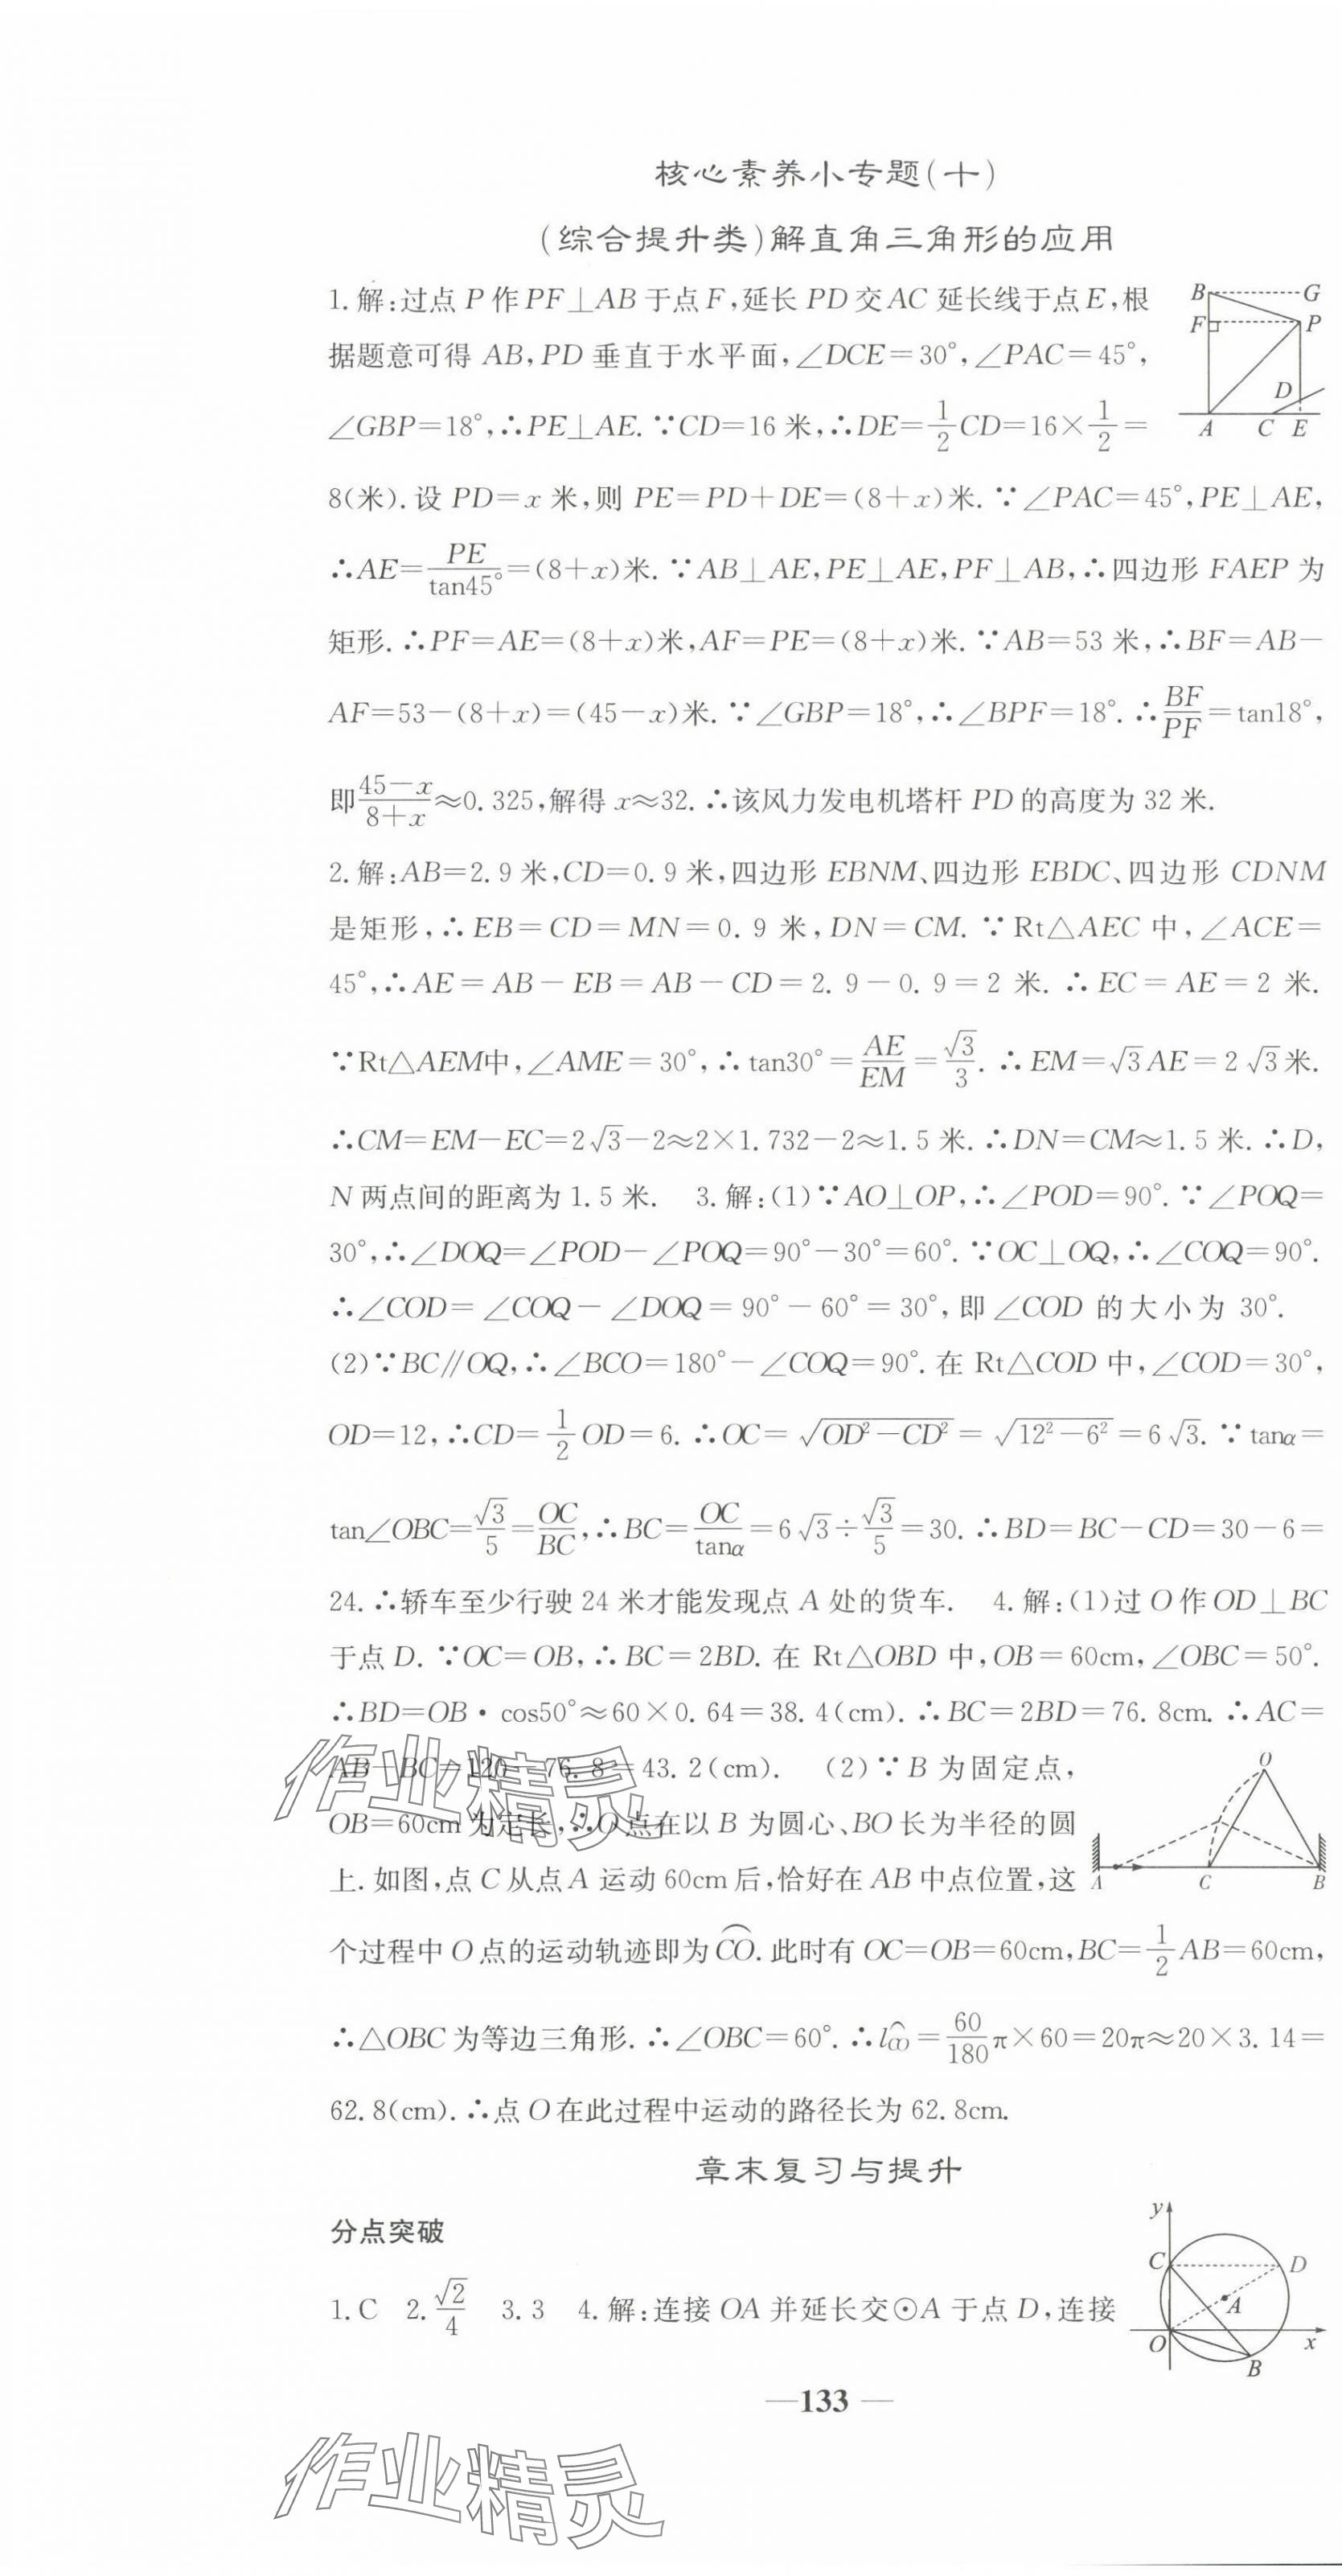 核心素养小专题(十)
(综合提升类)解直角三角形的应用
1.解:过点P作PF⊥AB于点F,延长PD交AC延长线于点E,根
据题意可得AB,PD垂直于水平面,∠DCE=30°,∠PAC=45°,
∠GBP=18°,∴PE⊥AE.∵CD=16米,∴DE=1/2CD=16×1/2=
8(米).设PD=x米,则PE=PD+DE=(8+x)米.∵∠PAC=45°,PE⊥AE,
∴AE=PE/tan45°=(8+x)米.∵AB⊥AE,PE⊥AE,PF⊥AB,∴四边形FAEP为
矩形.∴PF=AE=(8+x)米,AF=PE=(8+x)米.∵AB=53米,∴BF=AB-
AF=53-(8+x)=(45-x)米.∵∠GBP=18°,∴∠BPF=18°.∴BF/PF=tan18°,
即(45-x)/(8+x)≈0.325,解得x≈32.∴该风力发电机塔杆PD的高度为32米.
B G
F P
D
A C E
2.解:AB=2.9米,CD=0.9米,四边形EBNM、四边形EBDC、四边形CDNM
是矩形,∴EB=CD=MN=0.9米,DN=CM.∵Rt△AEC中,∠ACE=
45°,∴AE=AB-EB=AB-CD=2.9-0.9=2米.∴EC=AE=2米.
∵Rt△AEM中,∠AME=30°,∴tan30°=AE/EM=√3/3.∴EM=√3AE=2√3米.
∴CM=EM-EC=2√3-2≈2×1.732-2≈1.5米.∴DN=CM≈1.5米.∴D,
N两点间的距离为1.5米. 3.解:(1)∵AO⊥OP,∴∠POD=90°.∵∠POQ=
30°,∴∠DOQ=∠POD-∠POQ=90°-30°=60°.∵OC⊥OQ,∴∠COQ=90°.
∴∠COD=∠COQ-∠DOQ=90°-60°=30°,即∠COD的大小为30°.
(2)∵BC∥OQ,∴∠BCO=180°-∠COQ=90°.在Rt△COD中,∠COD=30°,
OD=12,∴CD=1/2OD=6.∴OC=√(OD²-CD²)=√(12²-6²)=6√3.∵tanα=
tan∠OBC=√3/5=OC/BC,∴BC=OC/tanα=6√3÷√3/5=30.∴BD=BC-CD=30-6=
24.∴轿车至少行驶24米才能发现点A处的货车. 4.解:(1)过O作OD⊥BC
于点D.∵OC=OB,∴BC=2BD.在Rt△OBD中,OB=60cm,∠OBC=50°.
∴BD=OB·cos50°≈60×0.64=38.4(cm).∴BC=2BD=76.8cm.∴AC=
AB-BC=120-76.8=43.2(cm). (2)∵B为固定点,
OB=60cm为定长,∴O点在以B为圆心、BO长为半径的圆
上.如图,点C从点A运动60cm后,恰好在AB中点位置,这
个过程中O点的运动轨迹即为⌒CO.此时有OC=OB=60cm,BC=1/2AB=60cm,
∴△OBC为等边三角形.∴∠OBC=60°.∴l⌒CO=60/180π×60=20π≈20×3.14=
62.8(cm).∴点O在此过程中运动的路径长为62.8cm.
O
A C B
章末复习与提升
分点突破
1.C 2.√2/4 3.3 4.解:连接OA并延长交⊙A于点D,连接
y
C D
A
O x
B
—133—
作业精灵
作业精灵